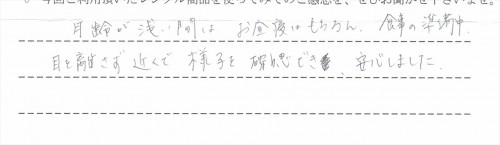 今回ご利用頂いたレンタル商品を使ってみてのご感想を、ぜひお聞かせ下さいませ。
月齢が浅い間は お昼寝はもちろん、食事の準備中、
目を離さず近くで 様子を 確認でき、安心しました。